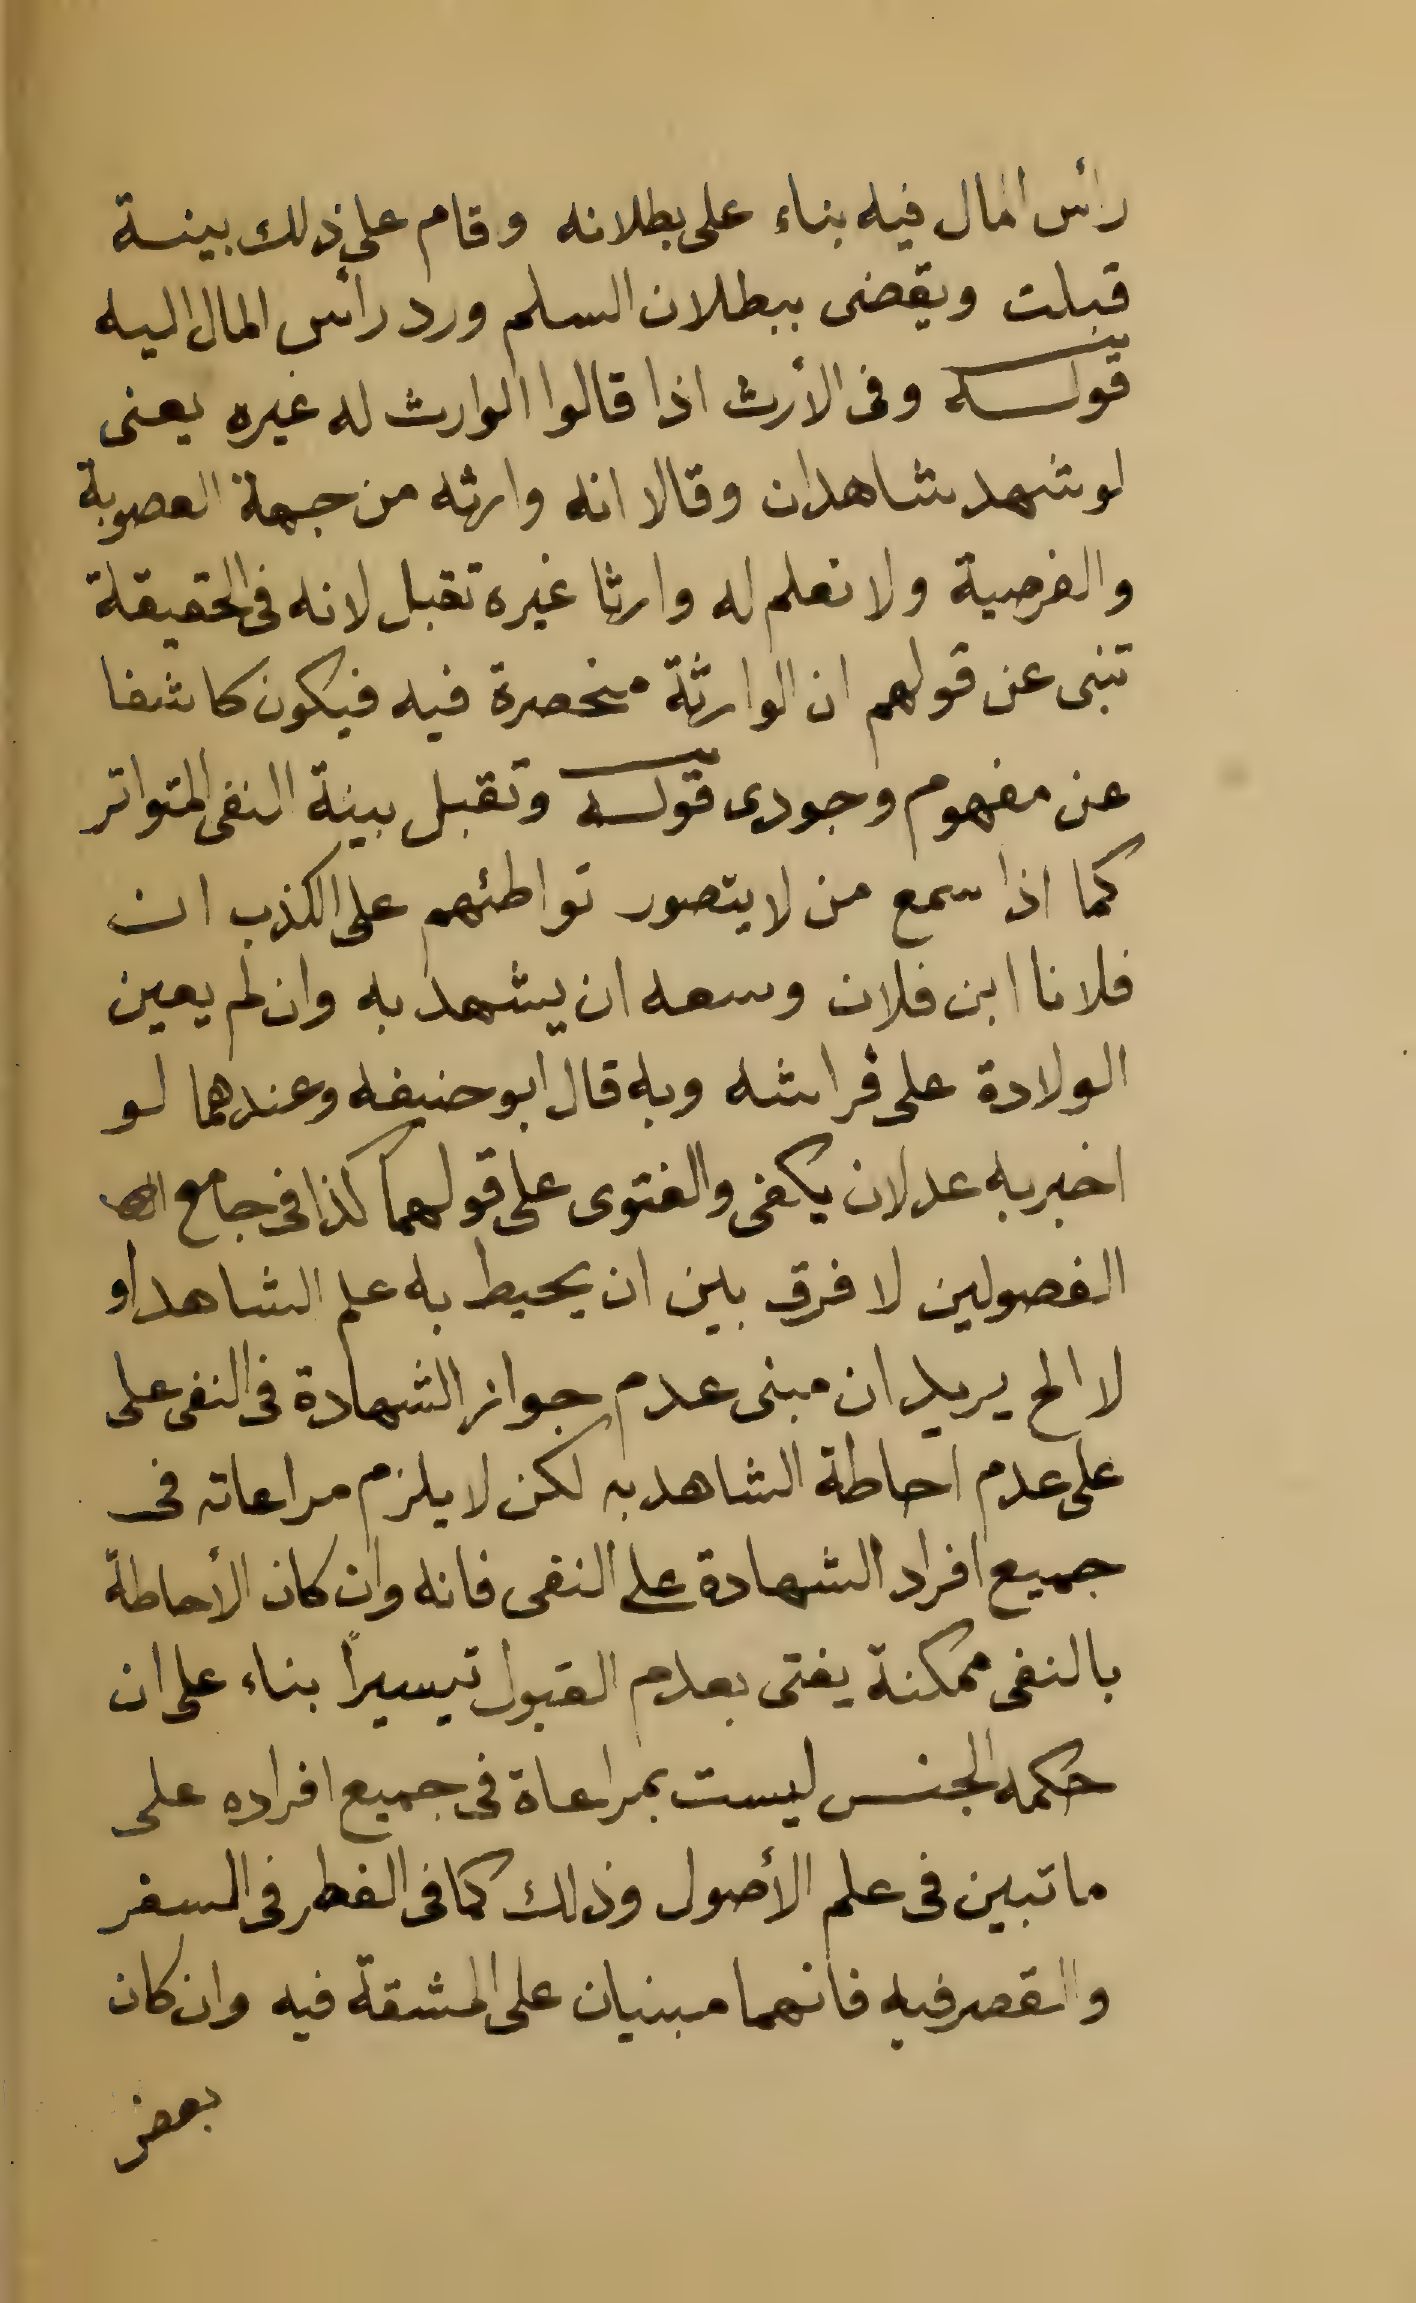 رأس المال فيه بناء على بطلانه وقام على ذلك بينة
قبلت ويقضى ببطلان السلم ورد رأس المال اليه
قوله وفى الأرث اذا قالوا الوارث له غيره يعنى
لو شهد شاهدان وقالا انه وارثه من جهة العصوبة
والفرضية ولا نعلم له وارثا غيره تقبل لانه فى الحقيقة
تنبى عن قولهم ان الوارثة منحصرة فيه فيكون كاشفا
عن مفهوم وجودى قوله وتقبل بينة النفى المتواتر
كما اذا سمع من لا يتصور تواطئهم على الكذب ان
فلانا ابن فلان وسعه ان يشهد به وان لم يعين
الولادة على فراشه وبه قال ابو حنيفه وعندهما لو
اخبر به عدلان يكفى والفتوى على قولهما كذا فى جامع
الفصولين لا فرق بين ان يحيط به علم الشاهد او
لا الخ يريد ان مبنى عدم جواز الشهادة فى النفى على
على عدم احاطة الشاهد به لكن لا يلزم مراعاته فى
جميع افراد الشهادة على النفى فانه وان كان الأحاطة
بالنفى ممكنة يفتى بعدم القبول تيسيراً بناء على ان
حكمه الجنس ليست بمراعاة فى جميع افراده على
ما تبين فى علم الأصول وذلك كما فى الفطر فى السفر
والقصر فيه فانهما مبنيان على المشقة فيه وان كان
بعض